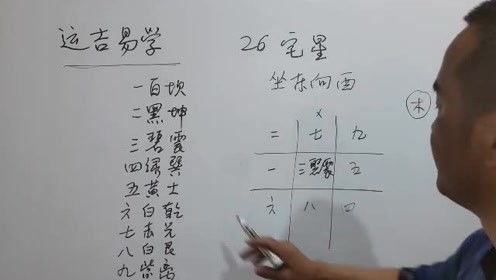 运吉易学
一白坎
二黑坤
三碧震
四绿巽
五黄土
六白乾
七赤兑
八白艮
九紫离
26宅星
坐东向西
x
二 七 九
一 三碧震 五
六 八 四
木